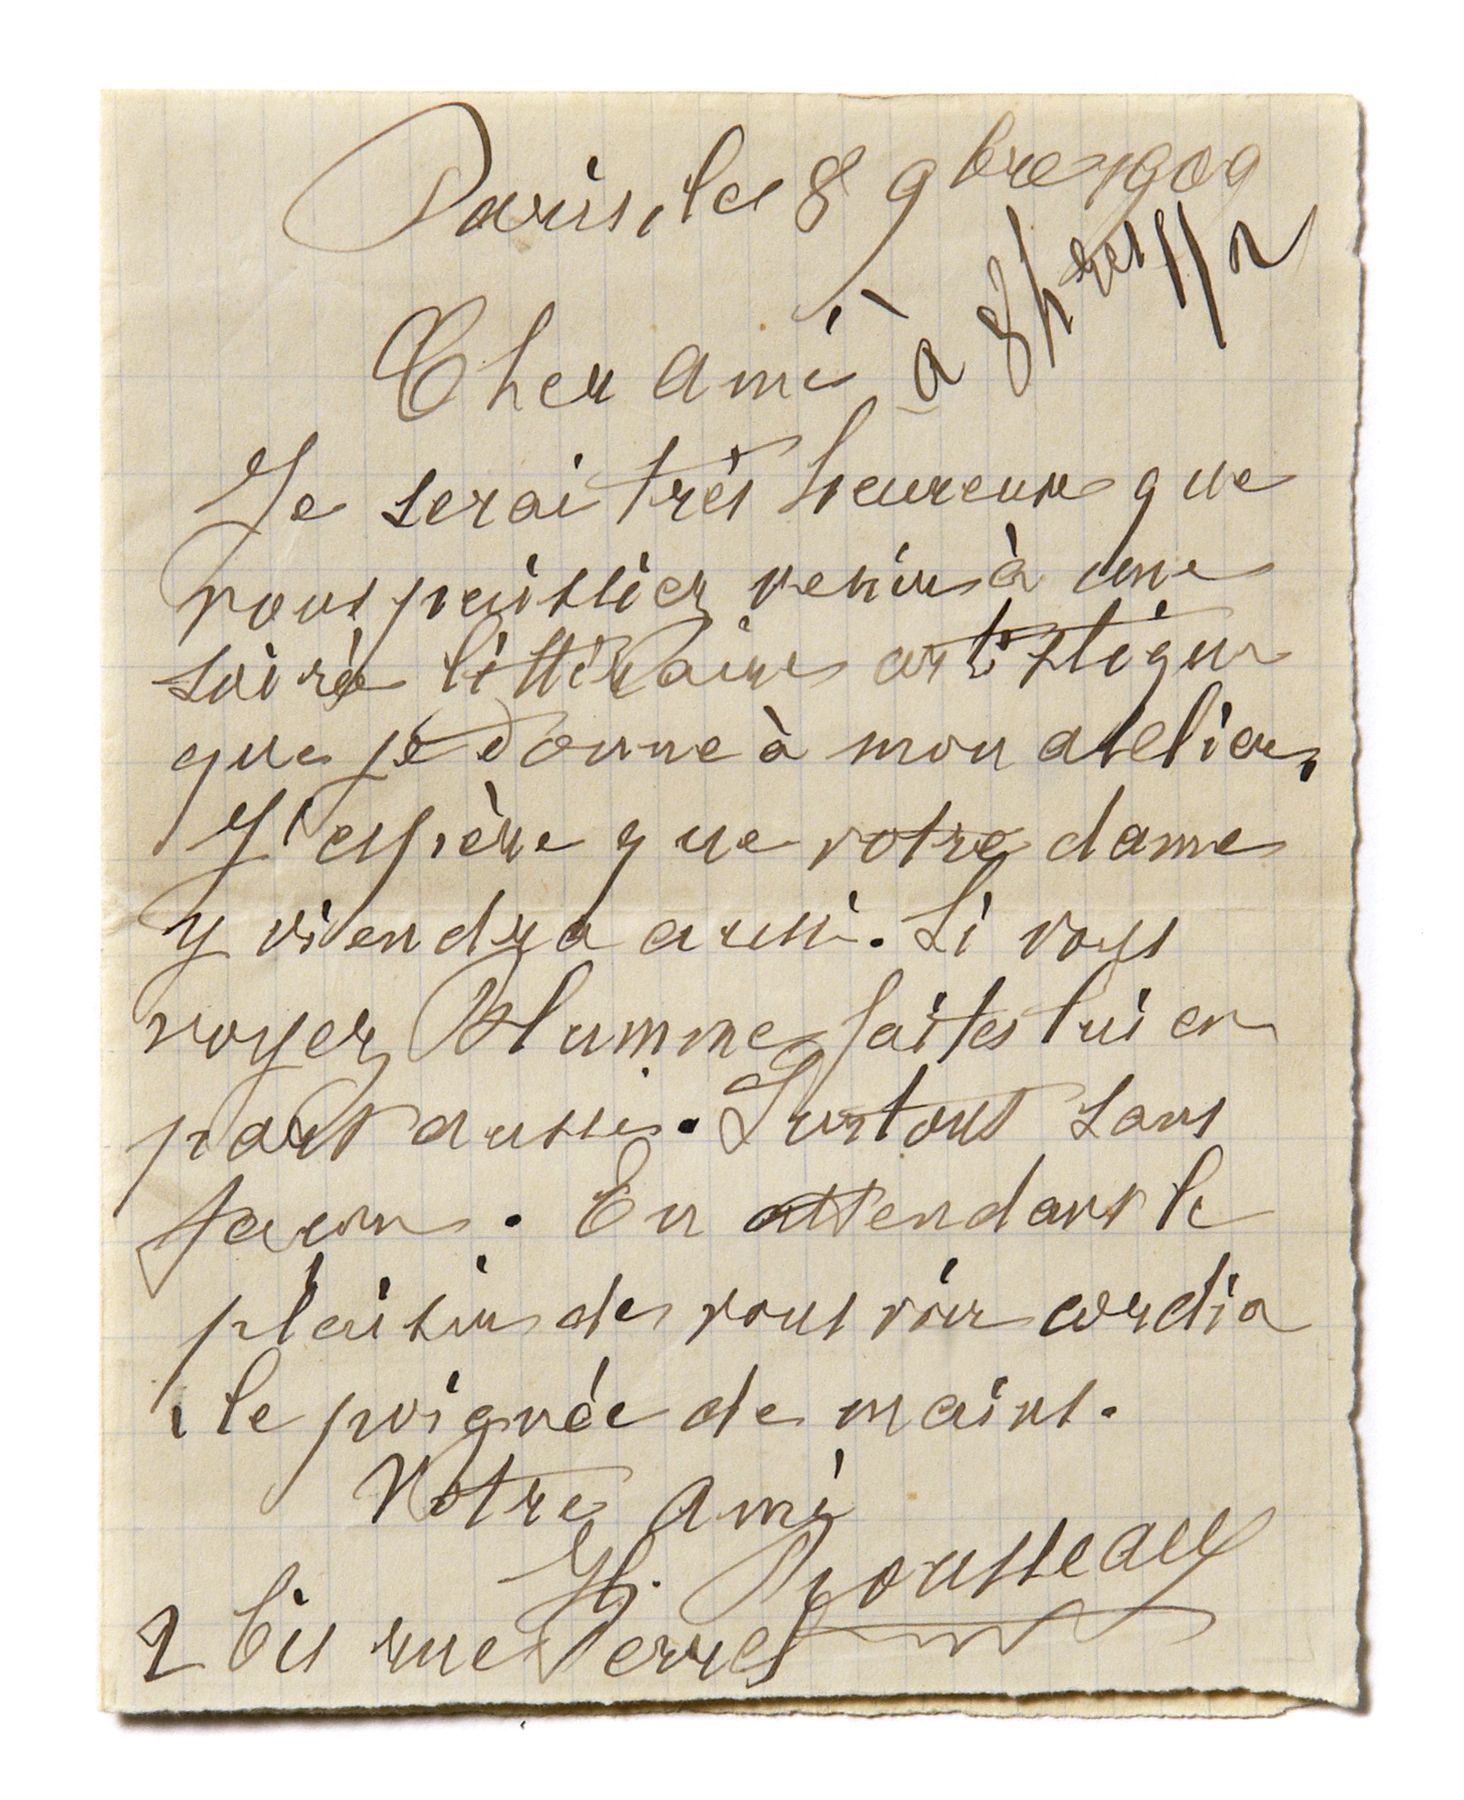 Paris, le 8 9bre 1909
à 8 hres 1/2
Cher Ami
Je serai très heureux que
vous puissiez venir à une
soirée littéraire artistique
que je donne à mon atelier,
J'espère que votre dame
y viendra aussi. Si vous
voyez faites lui en
part aussi. Surtout sans
façon. En attendant le
plaisir de vous voir cordia
le poignée de mains.
Votre Ami
H. Rousseau
2 bis rue Perrel